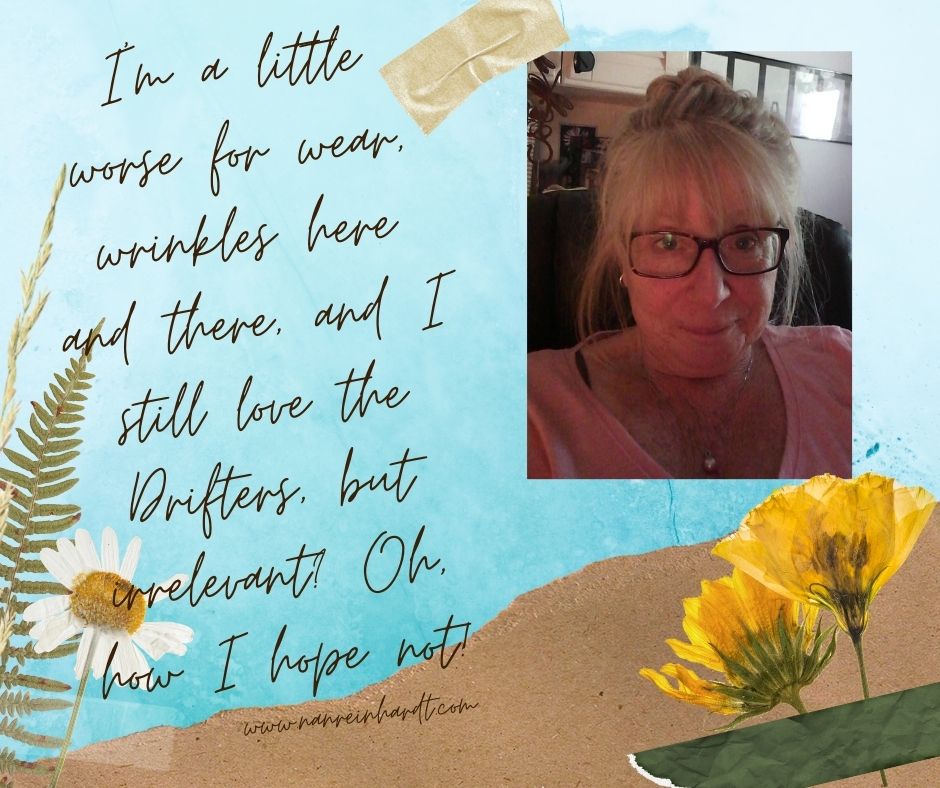 I'm a little
worse for wear,
wrinkles here
and there, and I
still love the
Drifters, but
irrelevant? Oh,
how I hope not!
www.nanreinhardt.com